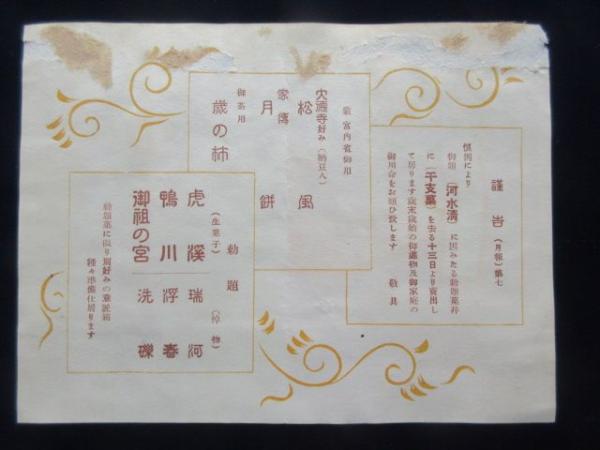 謹告 (月報) 第七
慣例により
御題 「河水清」 に因みたる勅題菓并
に 「干支菓」 を去る十三日より売出し
て居ります歳末歳始の御進物及御家庭の
御用命をお願ひ致します
敬具
宮内省御用
大徳寺好み (納豆入)
松風
家傳
月餅
御茶用
歳の柿
勅題
(生菓子) (棹物)
虎溪 瑞河
鴨川 浮春
御祖の宮 洗礫
勅題菓に限り別好みの意匠箱
種々準備仕居ります